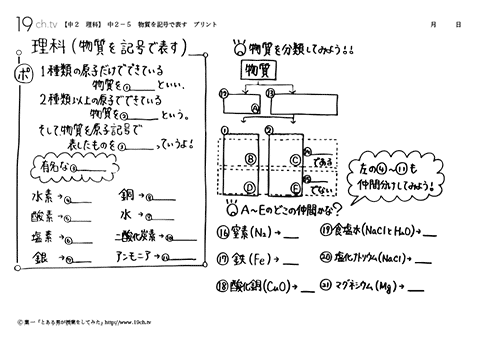 19ch.tv 【中2 理科】 中2-5 物質を記号で表す プリント 月 日
理科(物質を記号で表す)
ポ
1種類の原子だけでできている
物質を①____といい、
2種類以上の原子でできている
物質を②____という。
そして物質を原子記号で
表したものを③____っていうよ!
有名な③____
水素→④____
酸素→⑤____
塩素→⑥____
銀→⑦____
銅→⑧____
水→⑨____
二酸化炭素→⑩____
アンモニア→⑪____
物質を分類してみよう!!
物質
⑫ Ⓐ ⑬
① ②
Ⓑ Ⓒ ⑭____である
Ⓓ Ⓔ ⑮____でない
左の④~⑪も
仲間分けしてみよう!
A~Eのどこの仲間かな?
⑯窒素(N₂)→____
⑰鉄(Fe)→____
⑱酸化銅(CuO)→____
⑲食塩水(NaClとH₂O)→____
⑳塩化ナトリウム(NaCl)→____
㉑マグネシウム(Mg)→____
© 葉一「とある男が授業をしてみた」http://www.19ch.tv